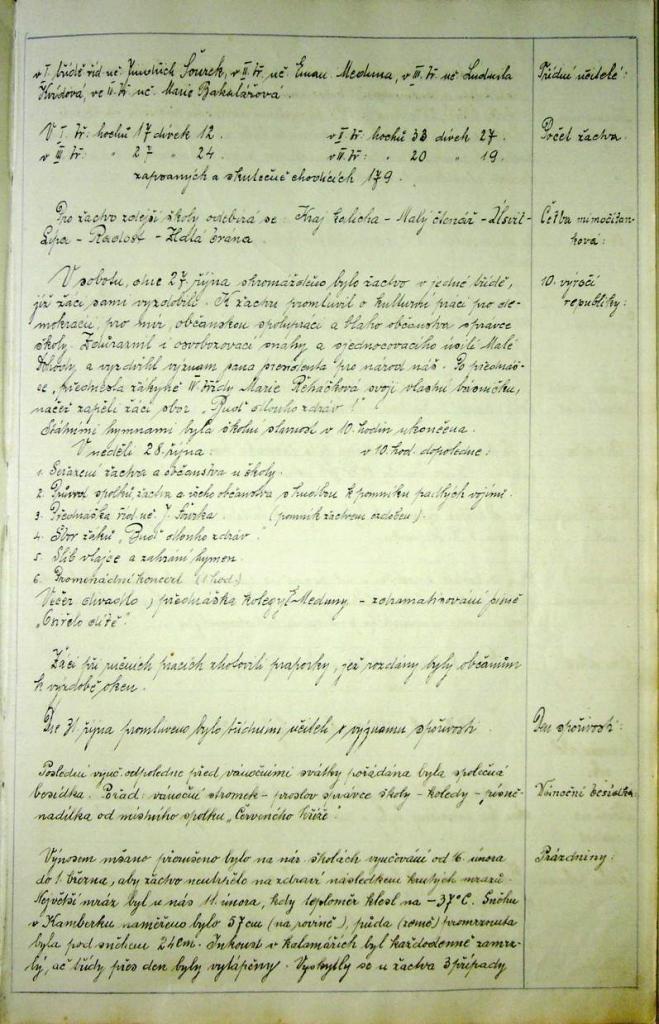 v I. třídě říd. uč. Jindřich Šourek, v II. tř. uč. Eman. Meduna, v III. tř. uč. Ludmila
ve IV. tř. uč. Marie Bakalářová.
Třídní učitelé:
V I. tř. hochů 17 dívek 12. v II. tř. hochů 33 dívek 27.
v III. tř. " 27 " 24. v IV. tř. " 20 " 19.
zapsaných a skutečně chodících 179.
Počet žactva.
Pro žactvo zdejší školy odebírá se: Kraj kalicha - Malý čtenář - Úsvit -
Lípa - Radost - Zlatá brána.
Četba mimočítan-
ková:
V sobotu, dne 27. října shromážděno bylo žactvo v jedné třídě,
již žáci sami vyzdobili. K žactvu promluvil o kulturní práci pro de-
mokracii, pro mír, občanskou spolupráci a blaho občanstva správce
školy. Zdůraznil i osvobozovací snahy a sjednocovacího úsilí Malé
Dohody, a vyzdvihl význam pana presidenta pro národ náš. Po přednáš-
ce přednesla žákyně IV. třídy Marie Řeháčková svoji vlastní básničku,
načež zapěli žáci sbor "Buď dlouho zdráv!"
Státními hymnami byla školní slavnost v 10. hodin ukončena.
10. výročí
republiky:
V neděli 28. října: v 10. hod. dopoledne:
1. Seřazení žactva a občanstva u školy.
2. Průvod spolků, žactva a všeho občanstva s hudbou k pomníku padlých vojínů.
3. Přednáška říd. uč. J. Šourka. (pomník žactvem ozdoben).
4. Sbor žáků "Buď dlouho zdráv".
5. Slib vlajce a zahrání hymen.
6. Promenádní koncert (1 hod.)
Večer divadlo, přednáška kolegy Meduny - zdramatisování písně
"Osiřelo dítě".
Žáci při ručních pracích zhotovili praporky, jež rozdány byly občanům
k výzdobě oken.
Dne 31. října promluveno bylo třídními učiteli o významu spořivosti.
Den spořivosti:
Poslední vyuč. odpoledne před vánočními svátky pořádána byla společná
besídka. Pořad: vánoční stromek - proslov správce školy - koledy - písně -
nadílka od místního spolku "Červeného kříže".
Vánoční besídka:
Výnosem min. přerušeno bylo na nás. školách vyučování od 16. února
do 1. března, aby žactvo neutrpělo na zdraví následkem krutých mrazů.
Největší mráz byl u nás 11. února, kdy teploměr klesl na -37°C. Sněhu
v Kamberku naměřeno bylo 57cm (na rovině), půda (země) promrznuta
byla pod sněhem 24cm. Inkoust v kalamářích byl každodenně zamrz-
lý, ač třídy přes den byly vytápěny. Vyskytly se u žactva 3 případy
Prázdniny: